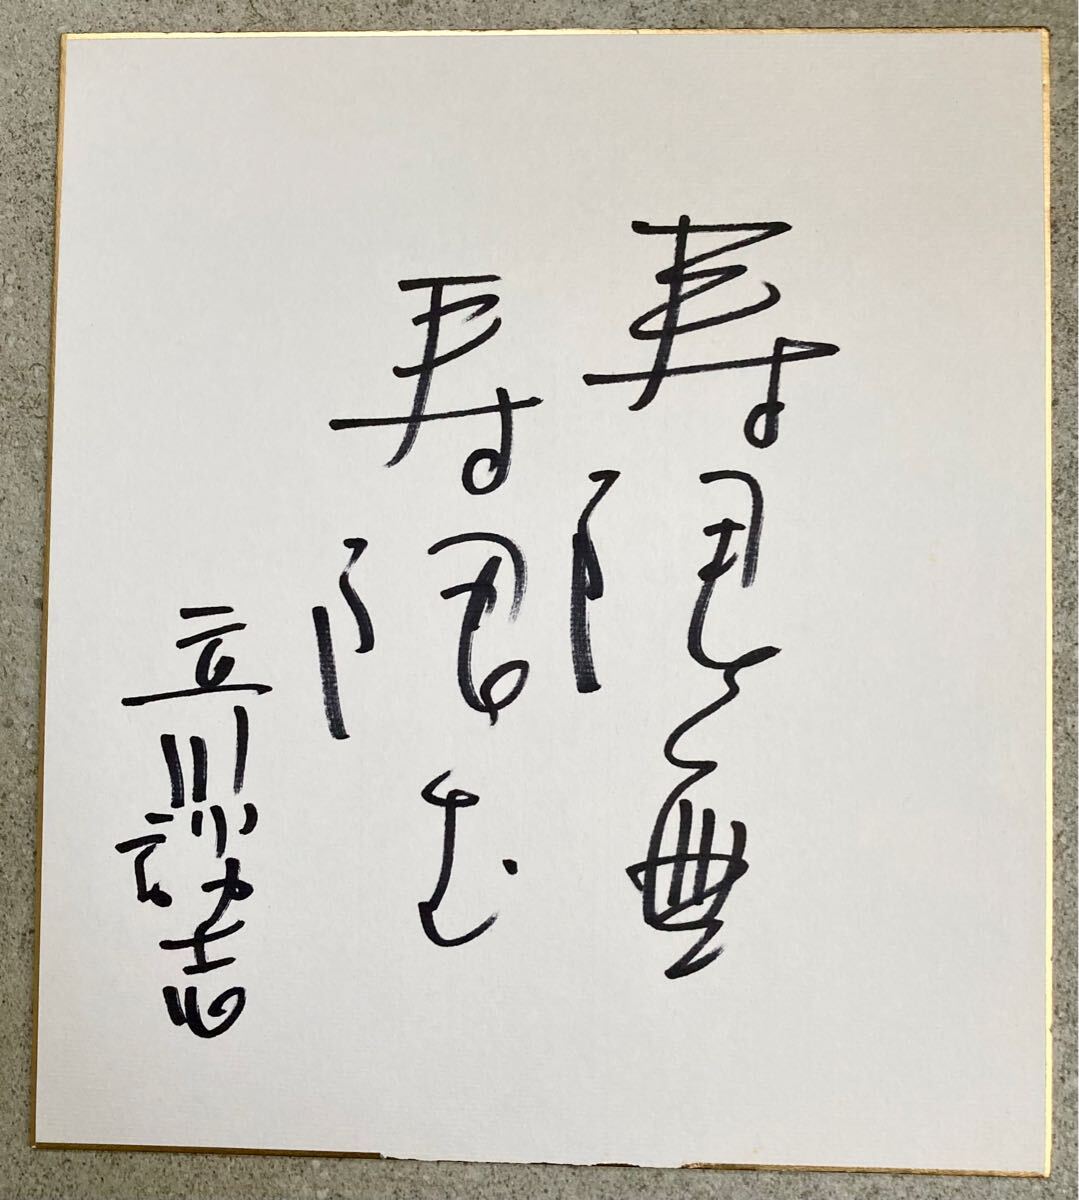 寿限無
寿限む
立川談志